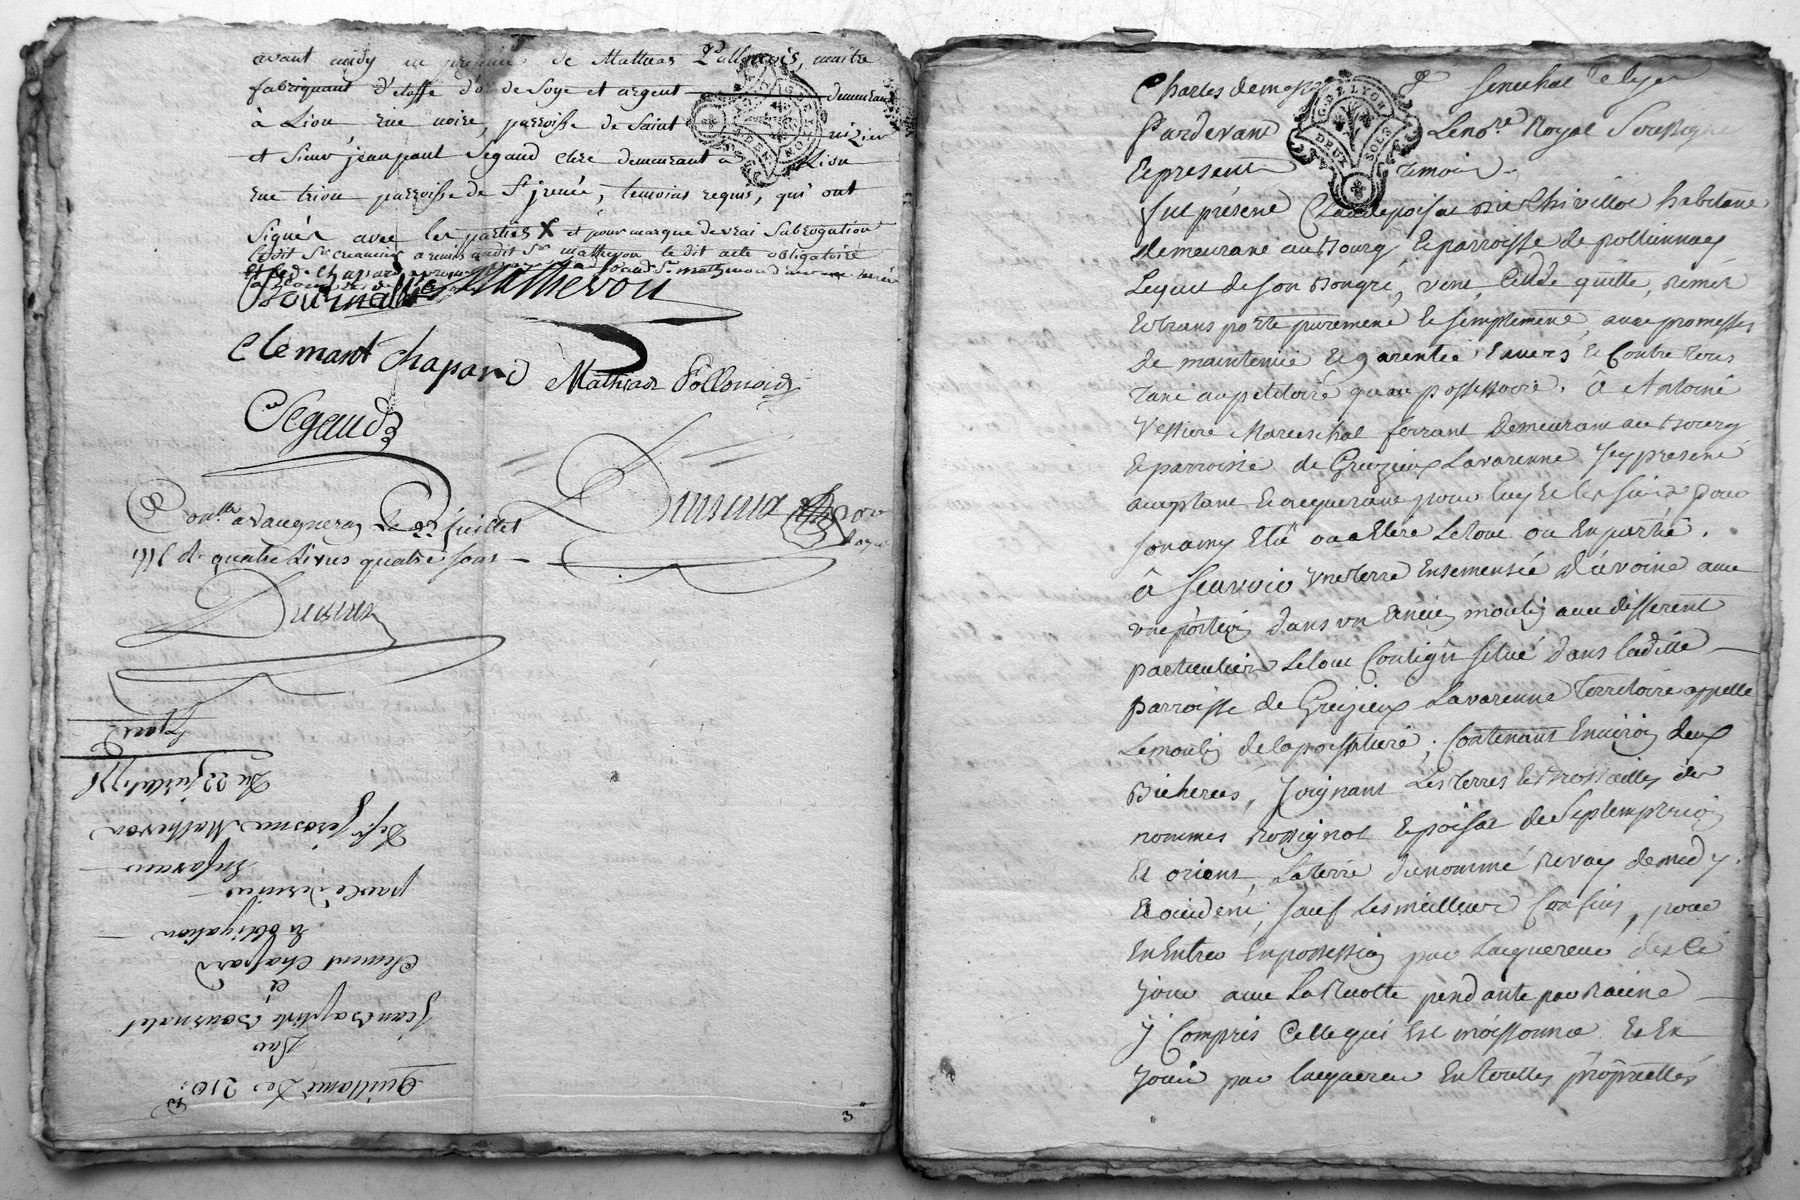 avant midy en présence de Mathias Pollonois, maitre
fabriquant d'étoffe d'or de Soye et argent demeurant
à Lion rue noire, parroisse de Saint nizier
et Sieur jean paul Segaud clerc demeurant à Lion
rue trion parroisse de St jrenée, temoins requis, qui ont
Signés avec les parties X et pour marque de vrai Subrogation
ledit Sr creancier a remis audit Sr matheron le dit acte obligatoire
Bournallet Matheron
Clemant chapard Mathias Pollonois
Segaud
Conllé a Vaugneray le 22 juillet
1776 R quatre Livres quatre sous
Du 22 juillet 1776
Sr Jerosme Matheron
la obligation
Clement Chapard
et
Jean Baptiste Bournalet
Par
Quittance Des 210
3
G. DE LYON
DEUX SOLS
Charles de Senechal de lyon
Pardevant Le no.re Royal Soussigné
Et present temoin
fut présent Claude poisat dit Chivillot habitant
demeurant au Bourg Et parroisse de pollionnay
Lequel de son Bongré, vent, Cedde quitte, remet
Et transporte purement Et simplement, avec promesses
de maintenue Et garentie Envers Et Contre tous
tant au petitoire qu'au possessoire. à Antoine
Vessiere Mareschal ferrant demeurant au Bourg
Et parroisse de Greizieux Lavarenne Jcy present
acceptant Et acquerant pour luy Et les siens pour
son amy Elû ou a Elire Le tout ou En partie.
à Scavoir Vne terre Ensemensée d'avoine avec
vne portion dans vn Ancien moulin avec different
particuliers Le tout Contigû situé dans laditte
parroisse de Greizieux Lavarenne territoire appellé
Le moulin de la poissatiere, Contenant Environ deux
Bicherées, Joignant Les terres Et Brossailles des
nommés Rossignol Et poisat de Septemptrion
Et orient, La terre du nommé Revay de midy.
Et occident, sauf Les meilleurs Confins, pour
En Entrer En possession par Lacquereur des ce
jour avec La Recolte pendante par Racine
y Compris Celle qui Est moissonnée Et En
Jouir par lacquereur En toutte propriettés